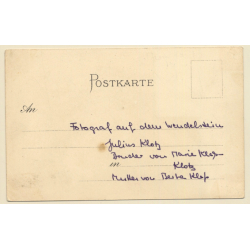 POSTKARTE
An
Fotograf auf dem Wendelstein
Julius Klotz
Bruder von Marie Klotz
in
Klotz
Mutter von Berta